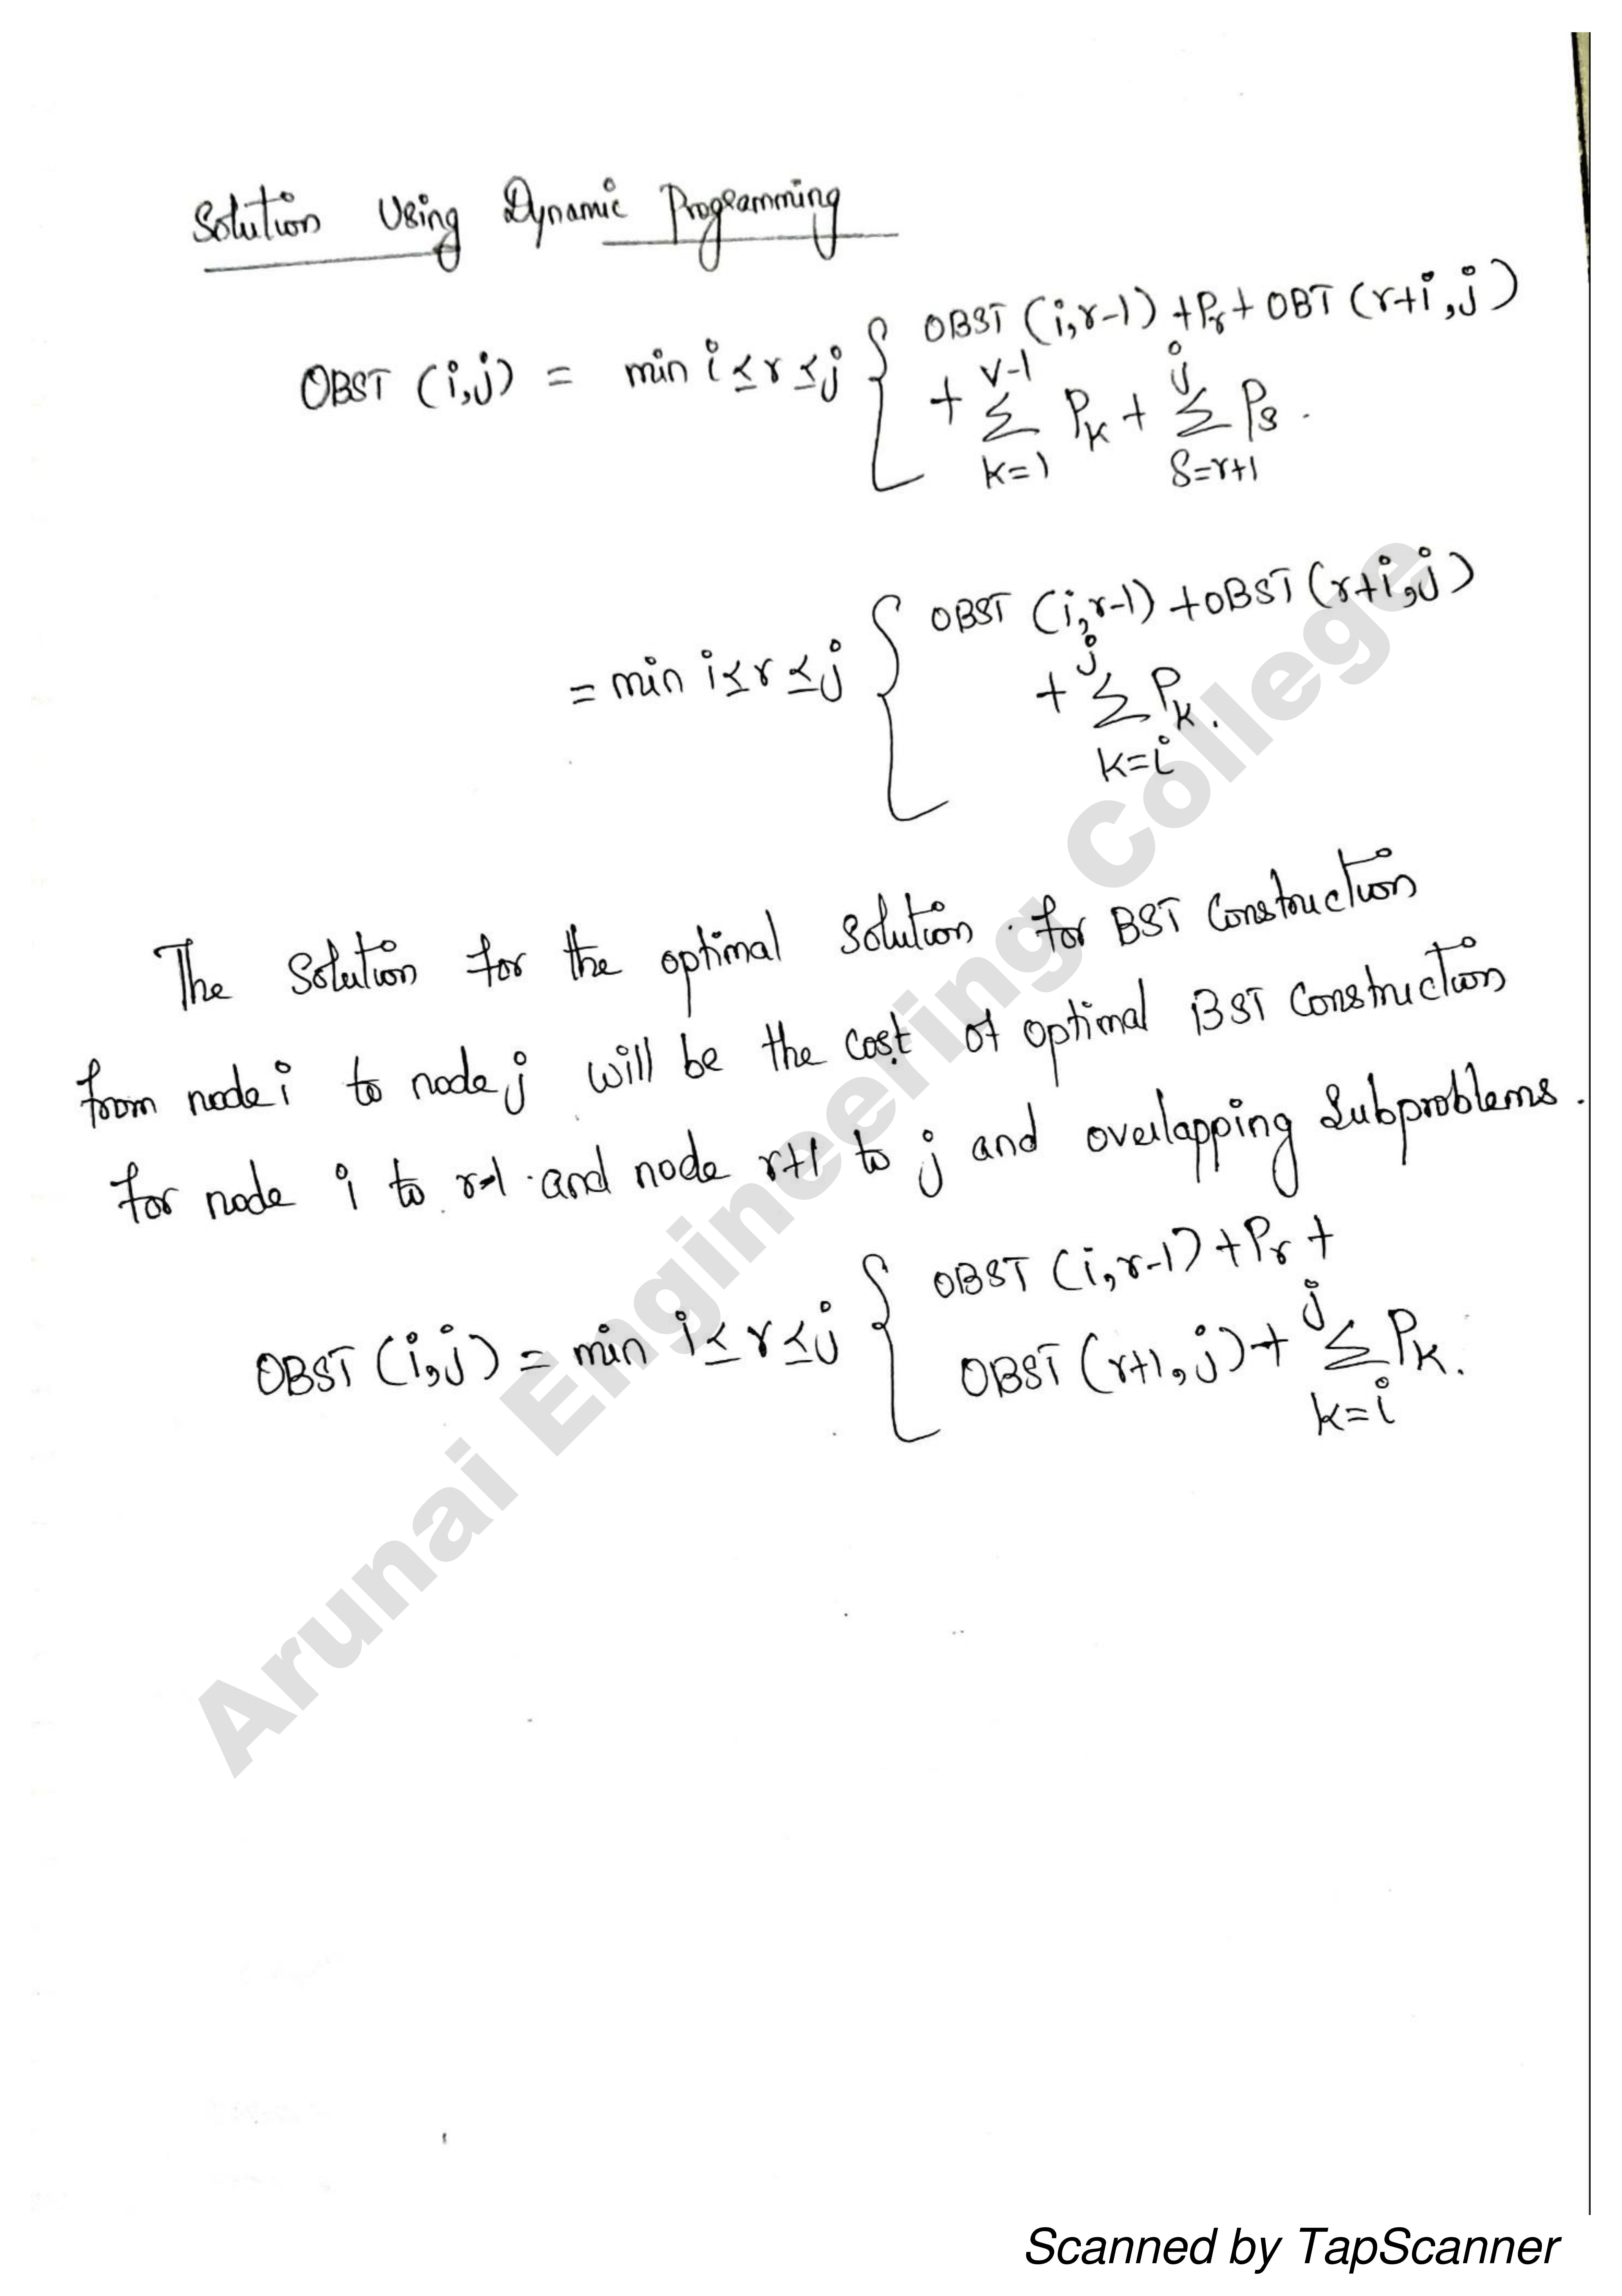 Solution Using Dynamic Programming
OBST (i,j) = min i≤r≤j { OBST (i,r-1) + Pr + OBT (r+i,j)
+ v-1 Σ k=1 Pk + j Σ s=r+1 Ps .
= min i≤r≤j { OBST (i,r-1) + OBST (r+i,j)
+ j Σ k=i Pk .
The Solution for the optimal Solution . for BST Construction
from node i to node j will be the cost of optimal BST Construction
for node i to r-1 . and node r+1 to j and overlapping Subproblems .
OBST (i,j) = min i≤r≤j { OBST (i,r-1) + Pr +
OBST (r+1,j) + j Σ k=i Pk .
Arunai Engineering College
Scanned by TapScanner